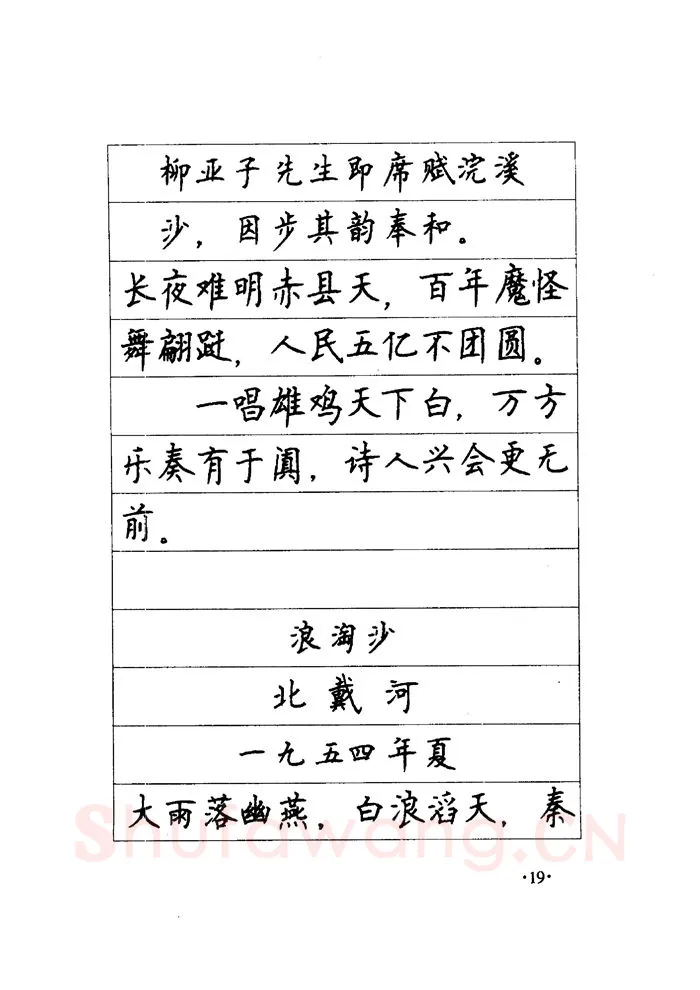 柳亚子先生即席赋浣溪
沙，因步其韵奉和。
长夜难明赤县天，百年魔怪
舞翩跹，人民五亿不团圆。
一唱雄鸡天下白，万方
乐奏有于阗，诗人兴会更无
前。
浪淘沙
北戴河
一九五四年夏
大雨落幽燕，白浪滔天，秦
Shufawang.CN
·19·